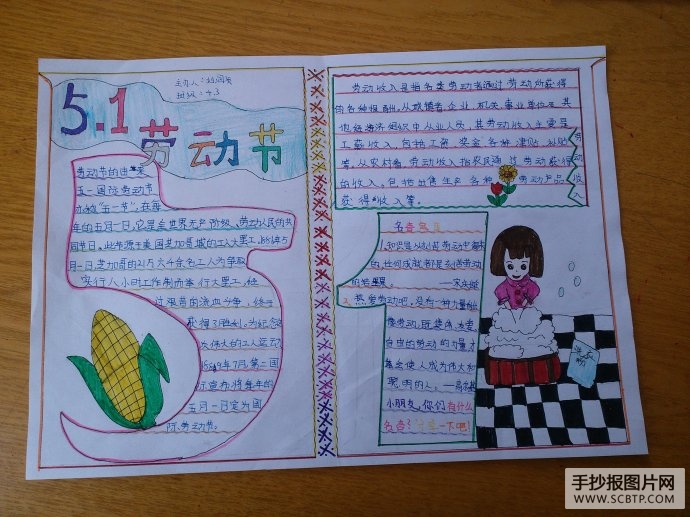 主办人:
班级:4.3
5.1
劳动节
劳动节的由来
五一国际劳动节
亦称"五一节",在每
年的五月一日。它是全世界无产阶级、劳动人民的共
同节日。此节源于美国芝加哥城的工人大罢工。1886年5
月1日,芝加哥的21万6千余名工人为争取
实行八小时工作制而举行大罢工,经
过艰苦的流血斗争,终于
获得了胜利。为纪念
次伟大的工人运动
1889年7月,第二国
际宣布将每年的
五月一日定为国
际劳动节。
劳动收入是指各类劳动者通过劳动所获得
的各种报酬。从城镇看企业、机关、事业单位及其
他经济组织中从业人员,其劳动收入主要是
工薪收入,包括工资、奖金、各种津贴、补贴
等。从农村看,劳动收入指农民通过劳动获得
的收入,包括出售生产各种劳动产品
获得的收入等。
劳动收入
名言
1.知识是从刻苦劳动中得来
的任何成就都是刻苦劳动
的结果。——宋庆龄
2.热爱劳动吧。没有一种力量能
像劳动,既集体、友爱、
自由的劳动的力量才
能使人成为伟大和
聪明的人。——高尔基
小朋友,你们有什么
名言?分享一下吧!
洗衣粉
手抄报图片网
WWW.SCBTP.COM